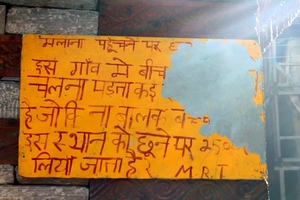 मलाना पहुँचने पर ह
इस गाँव मे बीच
चलना पड़ता कई
है जोकि ना बालक
इस स्थान को छूने पर २५०
लिया जाता है। M.R.T